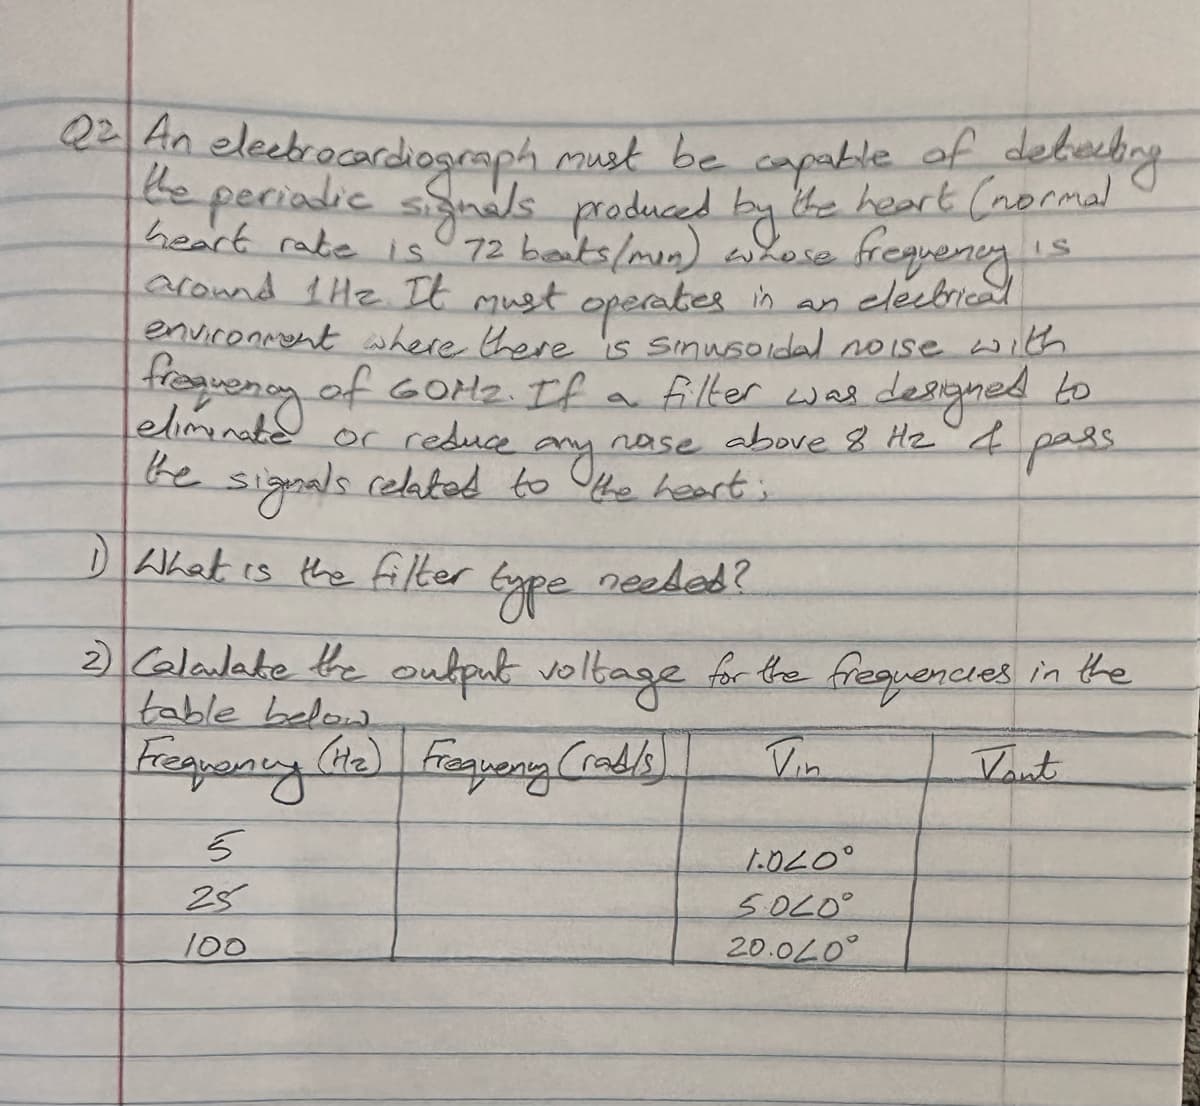 Q2 An electrocardiograph must be capable of detecting
the periodic signals produced by the heart (normal
heart rate is 72 beats/min) whose frequency is
around 1Hz. It must operates in an electrical
environment where there is sinusoidal noise with
frequency of 60Hz. If a filter was designed to
eliminate or reduce any noise above 8 Hz & pass
the signals related to the heart;
1) What is the filter type needed?
2) Calculate the output voltage for the frequencies in the
table below
Frequency (Hz) Frequency (rad/s) Vin Vout
5 1.0∠0°
25 5.0∠0°
100 20.0∠0°